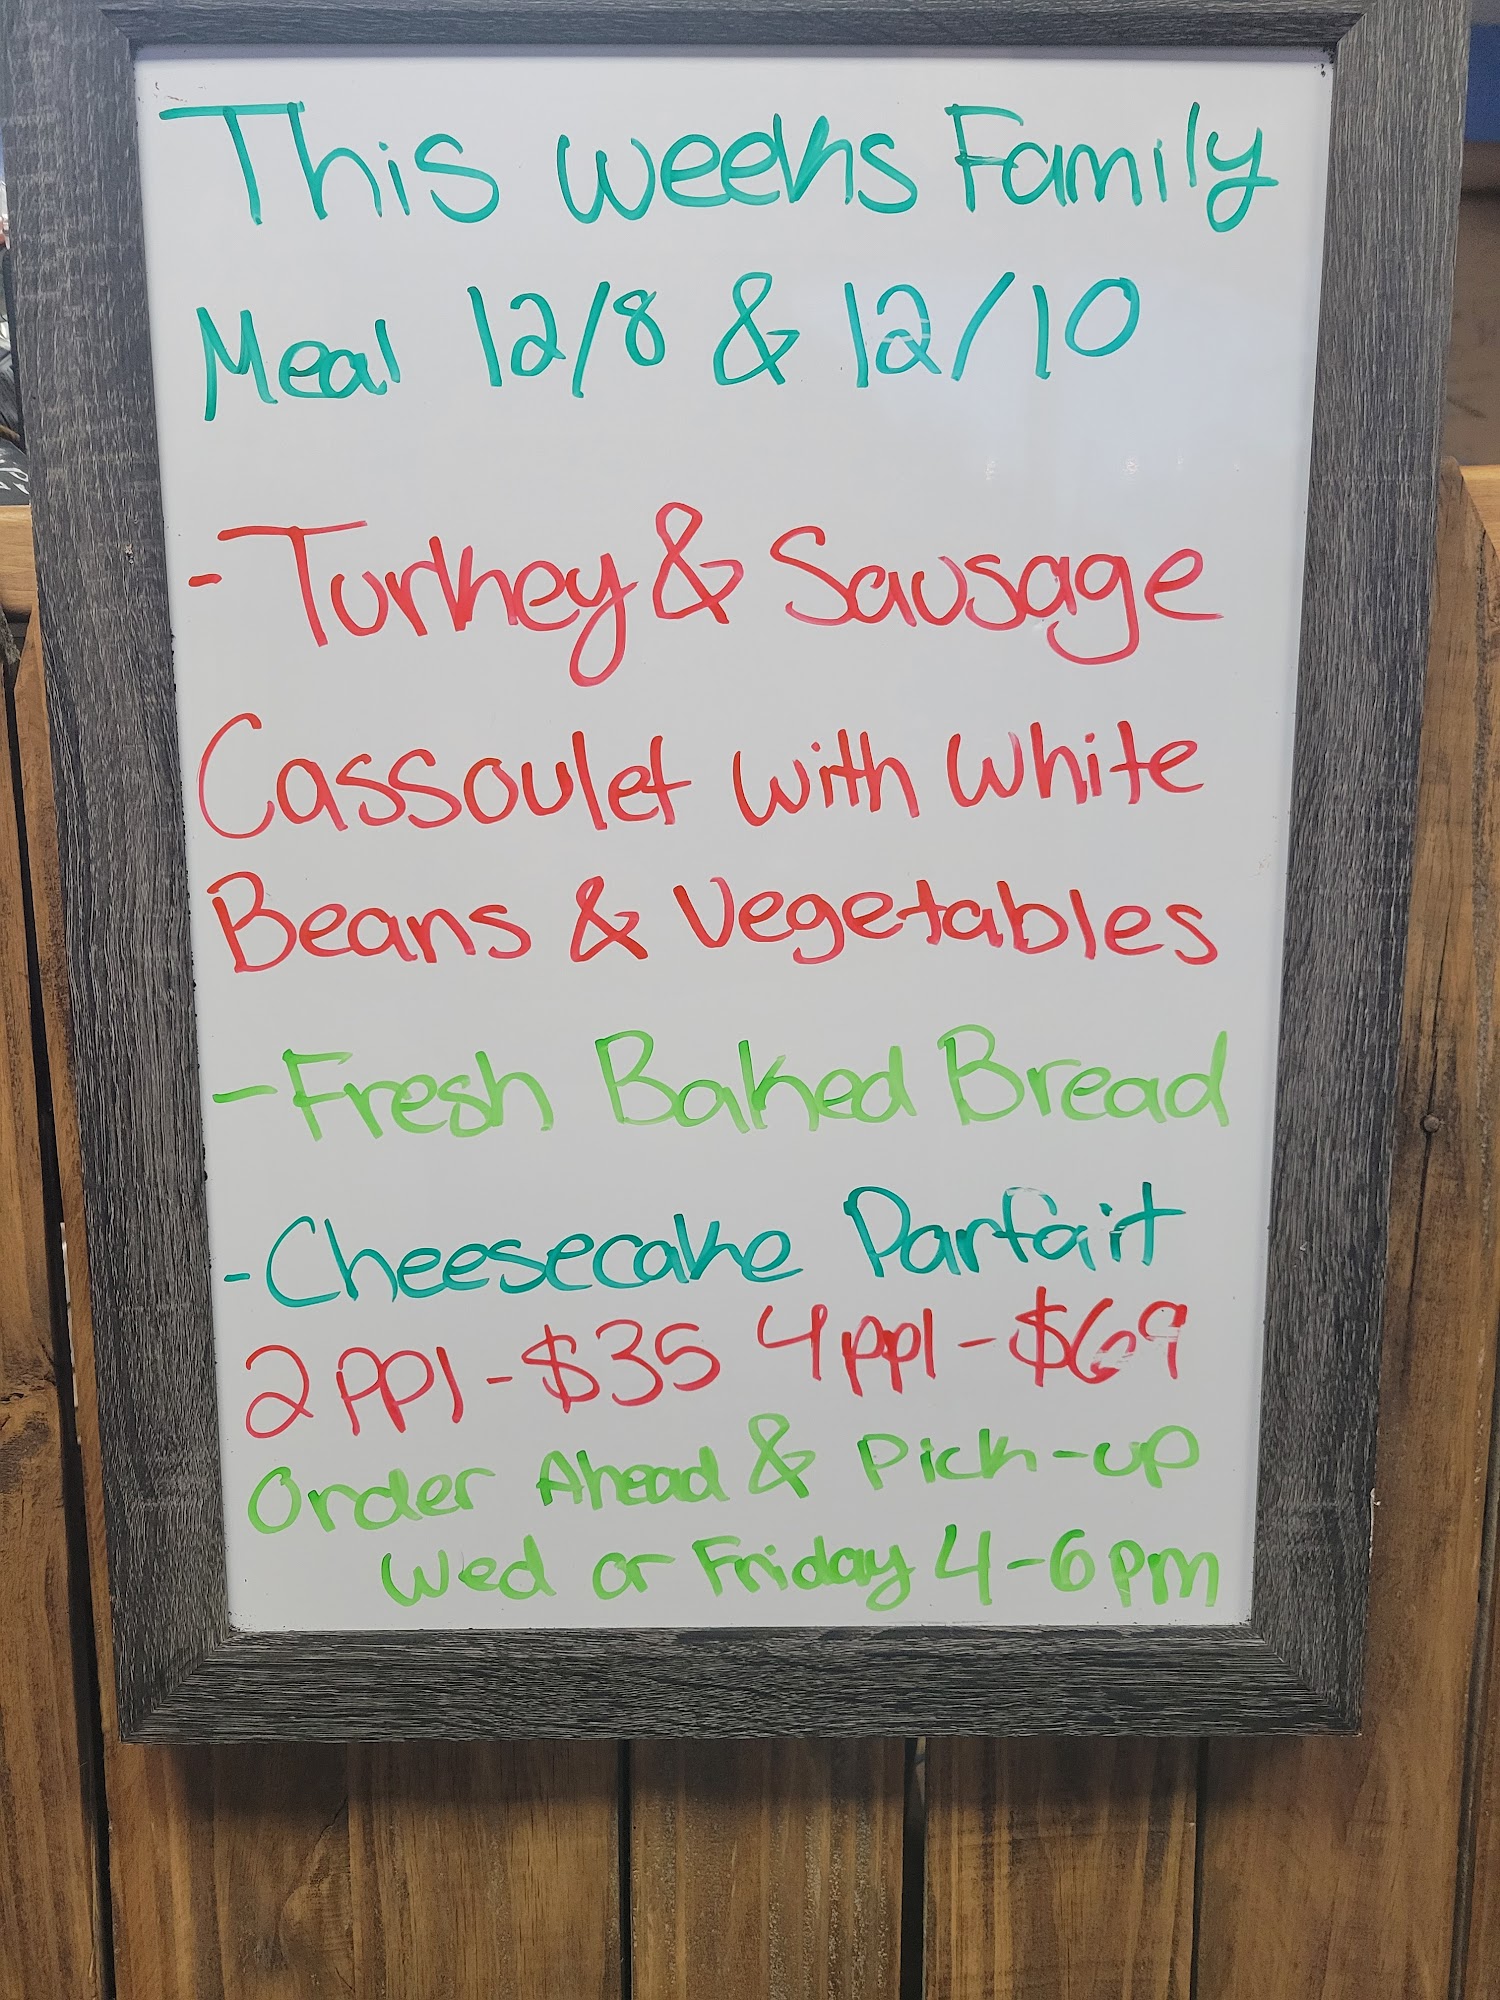 This weeks Family
Meal 12/8 & 12/10
- Turkey & Sausage
Cassoulet with White
Beans & Vegetables
- Fresh Baked Bread
- Cheesecake Parfait
2 ppl - $35 4 ppl - $69
Order Ahead & Pick-up
Wed or Friday 4-6pm